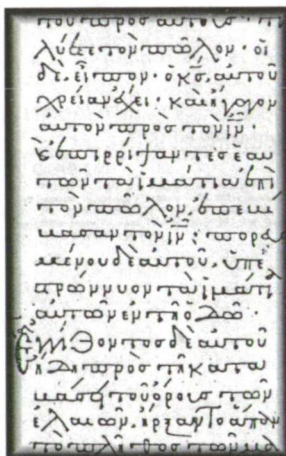 του προς αυτους· τι
λύετε τὸν πῶλον· οἱ
δὲ εἶπον· ὁ κς αὐτοῦ
χρείαν ἔχει· καὶ ἤγαγον
αὐτὸν πρὸς τὸν ιν·
ἐπιρρίψαντες ἑαυ
τῶν τὰ ἱμάτια ἐπὶ
τὸν πῶλον, ἐπεβί
βασαν τὸν ιν· πορευ
ομένου δὲ αὐτοῦ, ὑπε
στρώννυον τὰ ἱμάτι
α αὐτῶν ἐν τῇ ὁδῷ
Ἐγγίζοντος δὲ αὐτοῦ
ἤδη πρὸς τῇ κατα
βάσει τοῦ ὄρους τῶν
ἐλαιῶν, ἤρξαντο ἅπαν